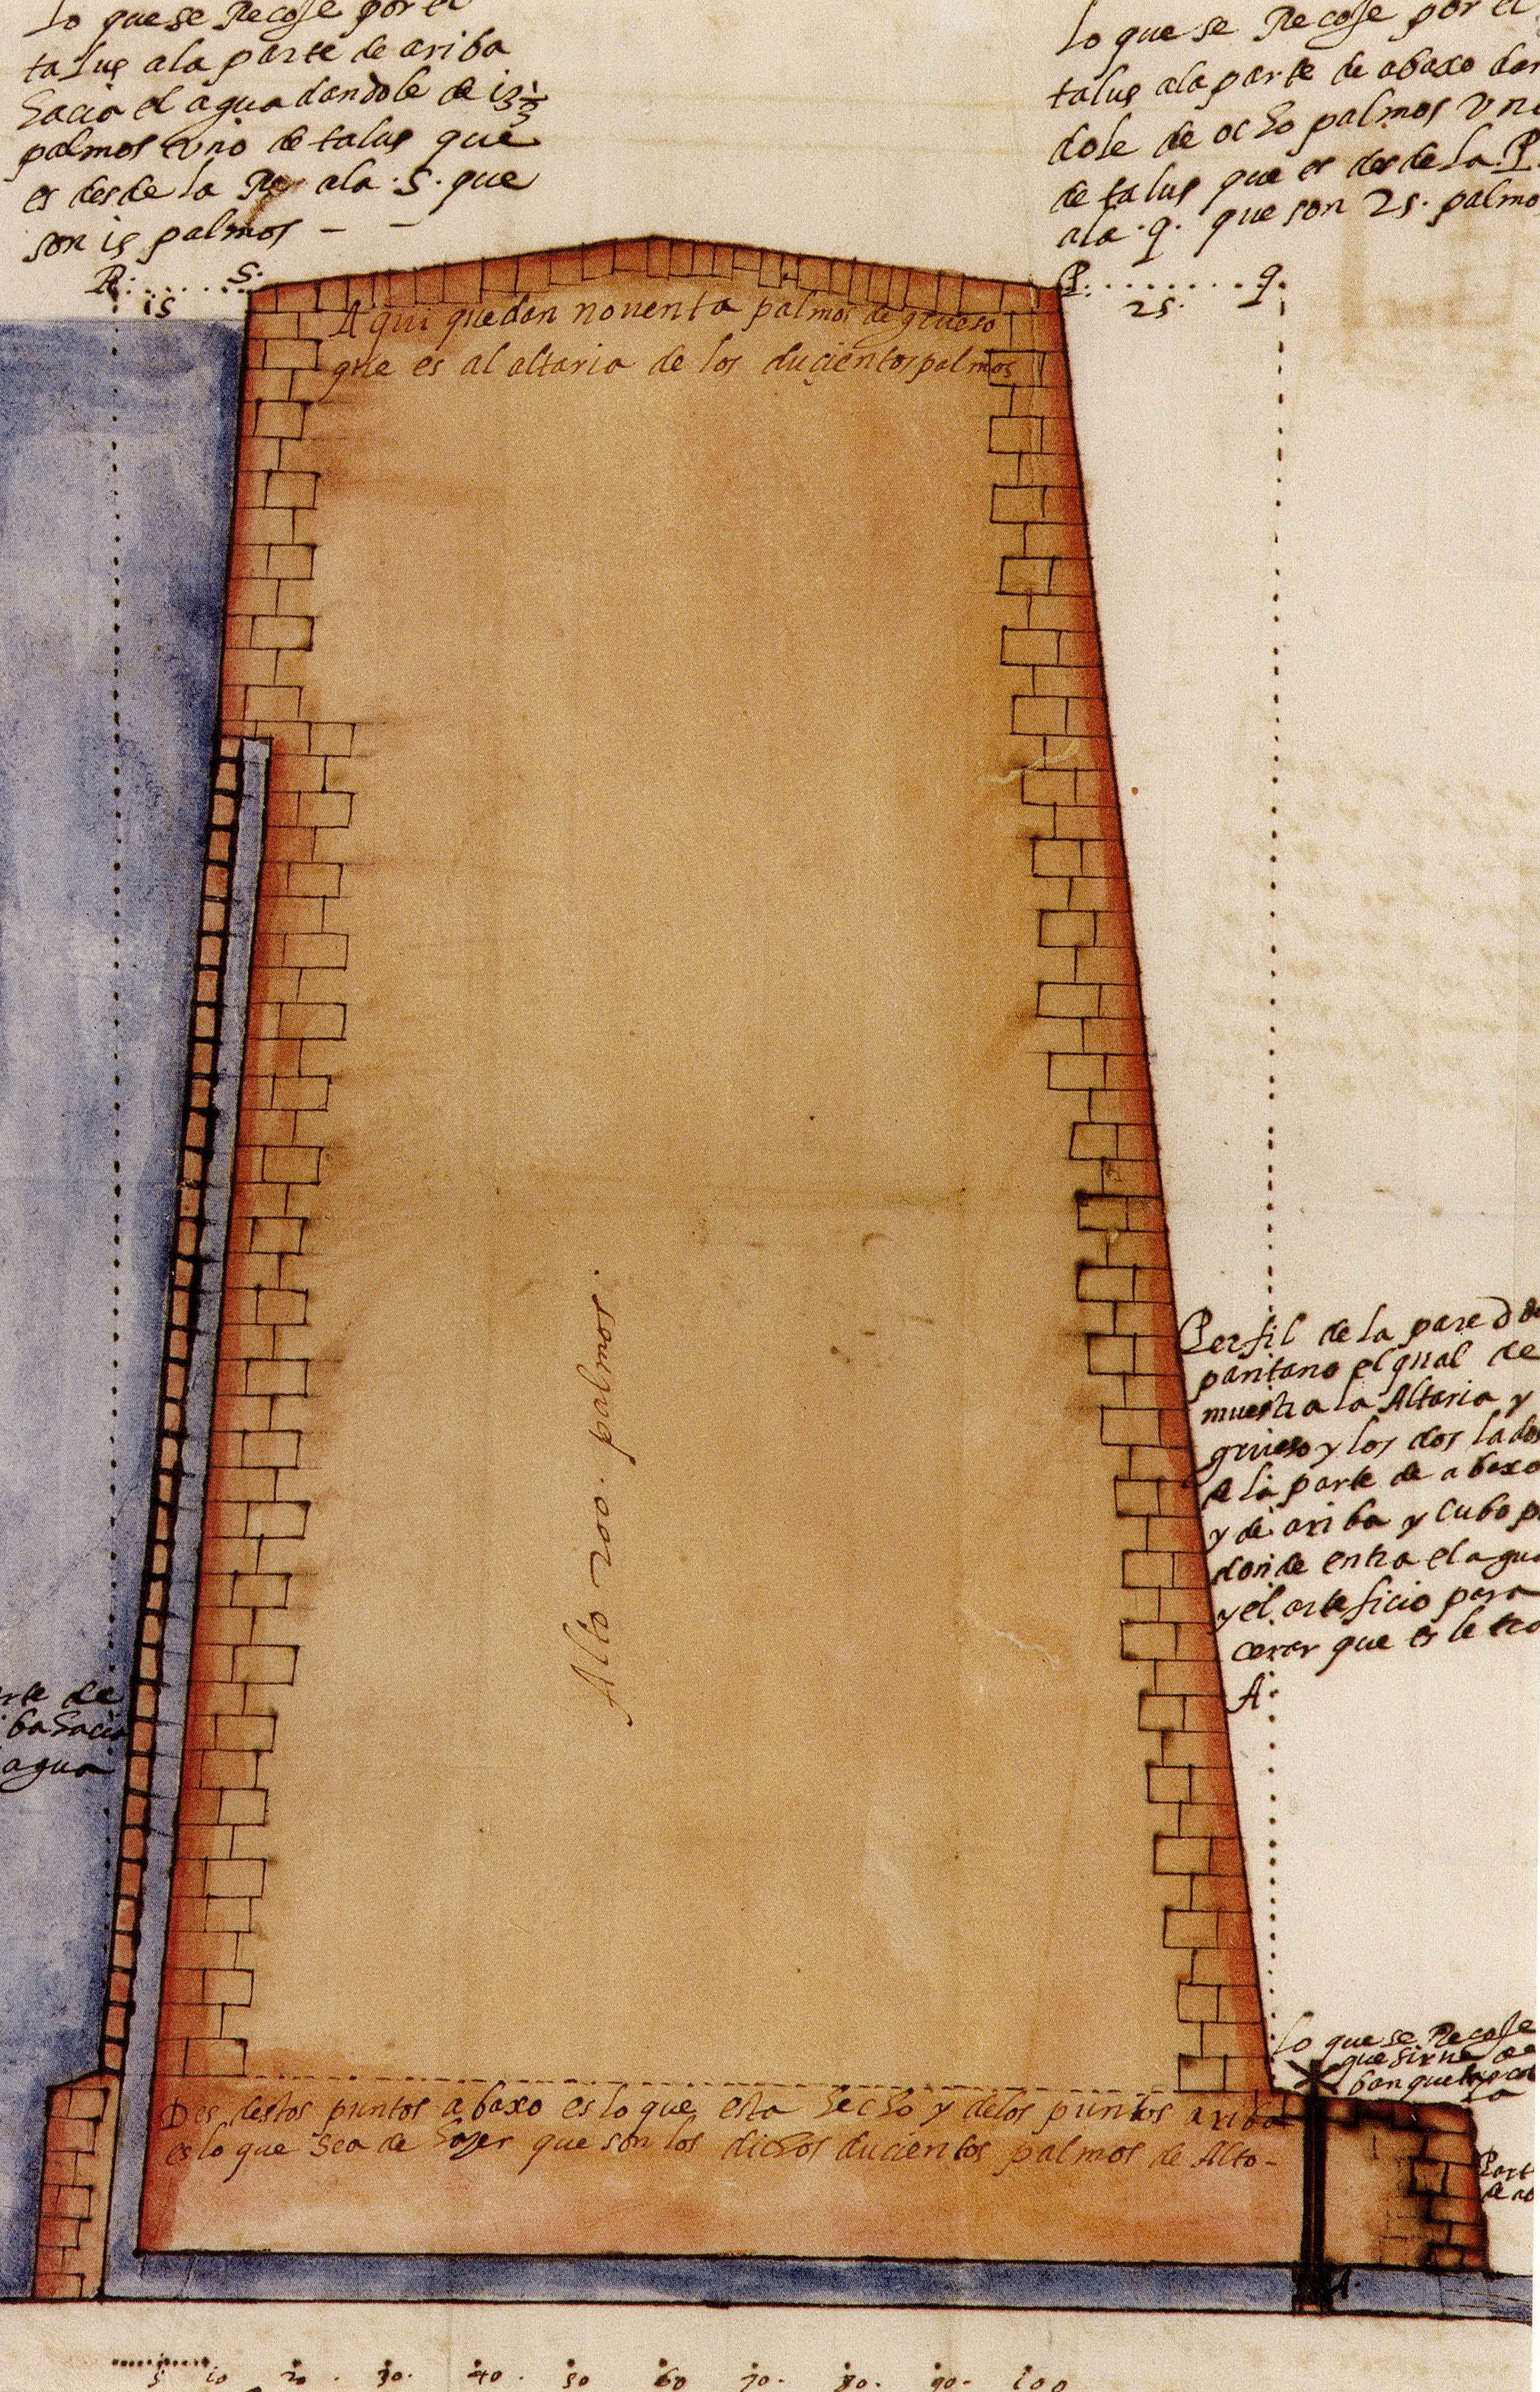 lo que se Recoje por el
talus ala parte de ariba
hacia el agua dandole de 13 1/3
palmos vno de talus que
es desde la R ala .S. que
son 15 palmos
R. S.
15
lo que se Recoje por el
talus ala parte de abaxo dan
dole de ocho palmos vno
de talus que es desde la .P.
ala .q. que son 25. palmo
P. q.
25.
Aqui quedan nouenta palmos de grueso
que es al altaria de los ducientos palmos
Alto 200. palmos.
Perfil de la pared de
pantano el qual de
muestra la Altaria y
grueso y los dos lados
de la parte de abaxo
y de ariba y cubo p
donde entra el agua
y el arteficio para
cerar que es letra
A.
rte de
ba hacia
agua
lo que se Recoje
que sirue de
banqueta
Des destos puntos abaxo es lo que esta hecho y delos puntos ariba
es lo que sea de hazer que son los dichos ducientos palmos de Alto-
Part
de ab
A.
5 10 20. 30. 40. 50 60 70. 80. 90. 100